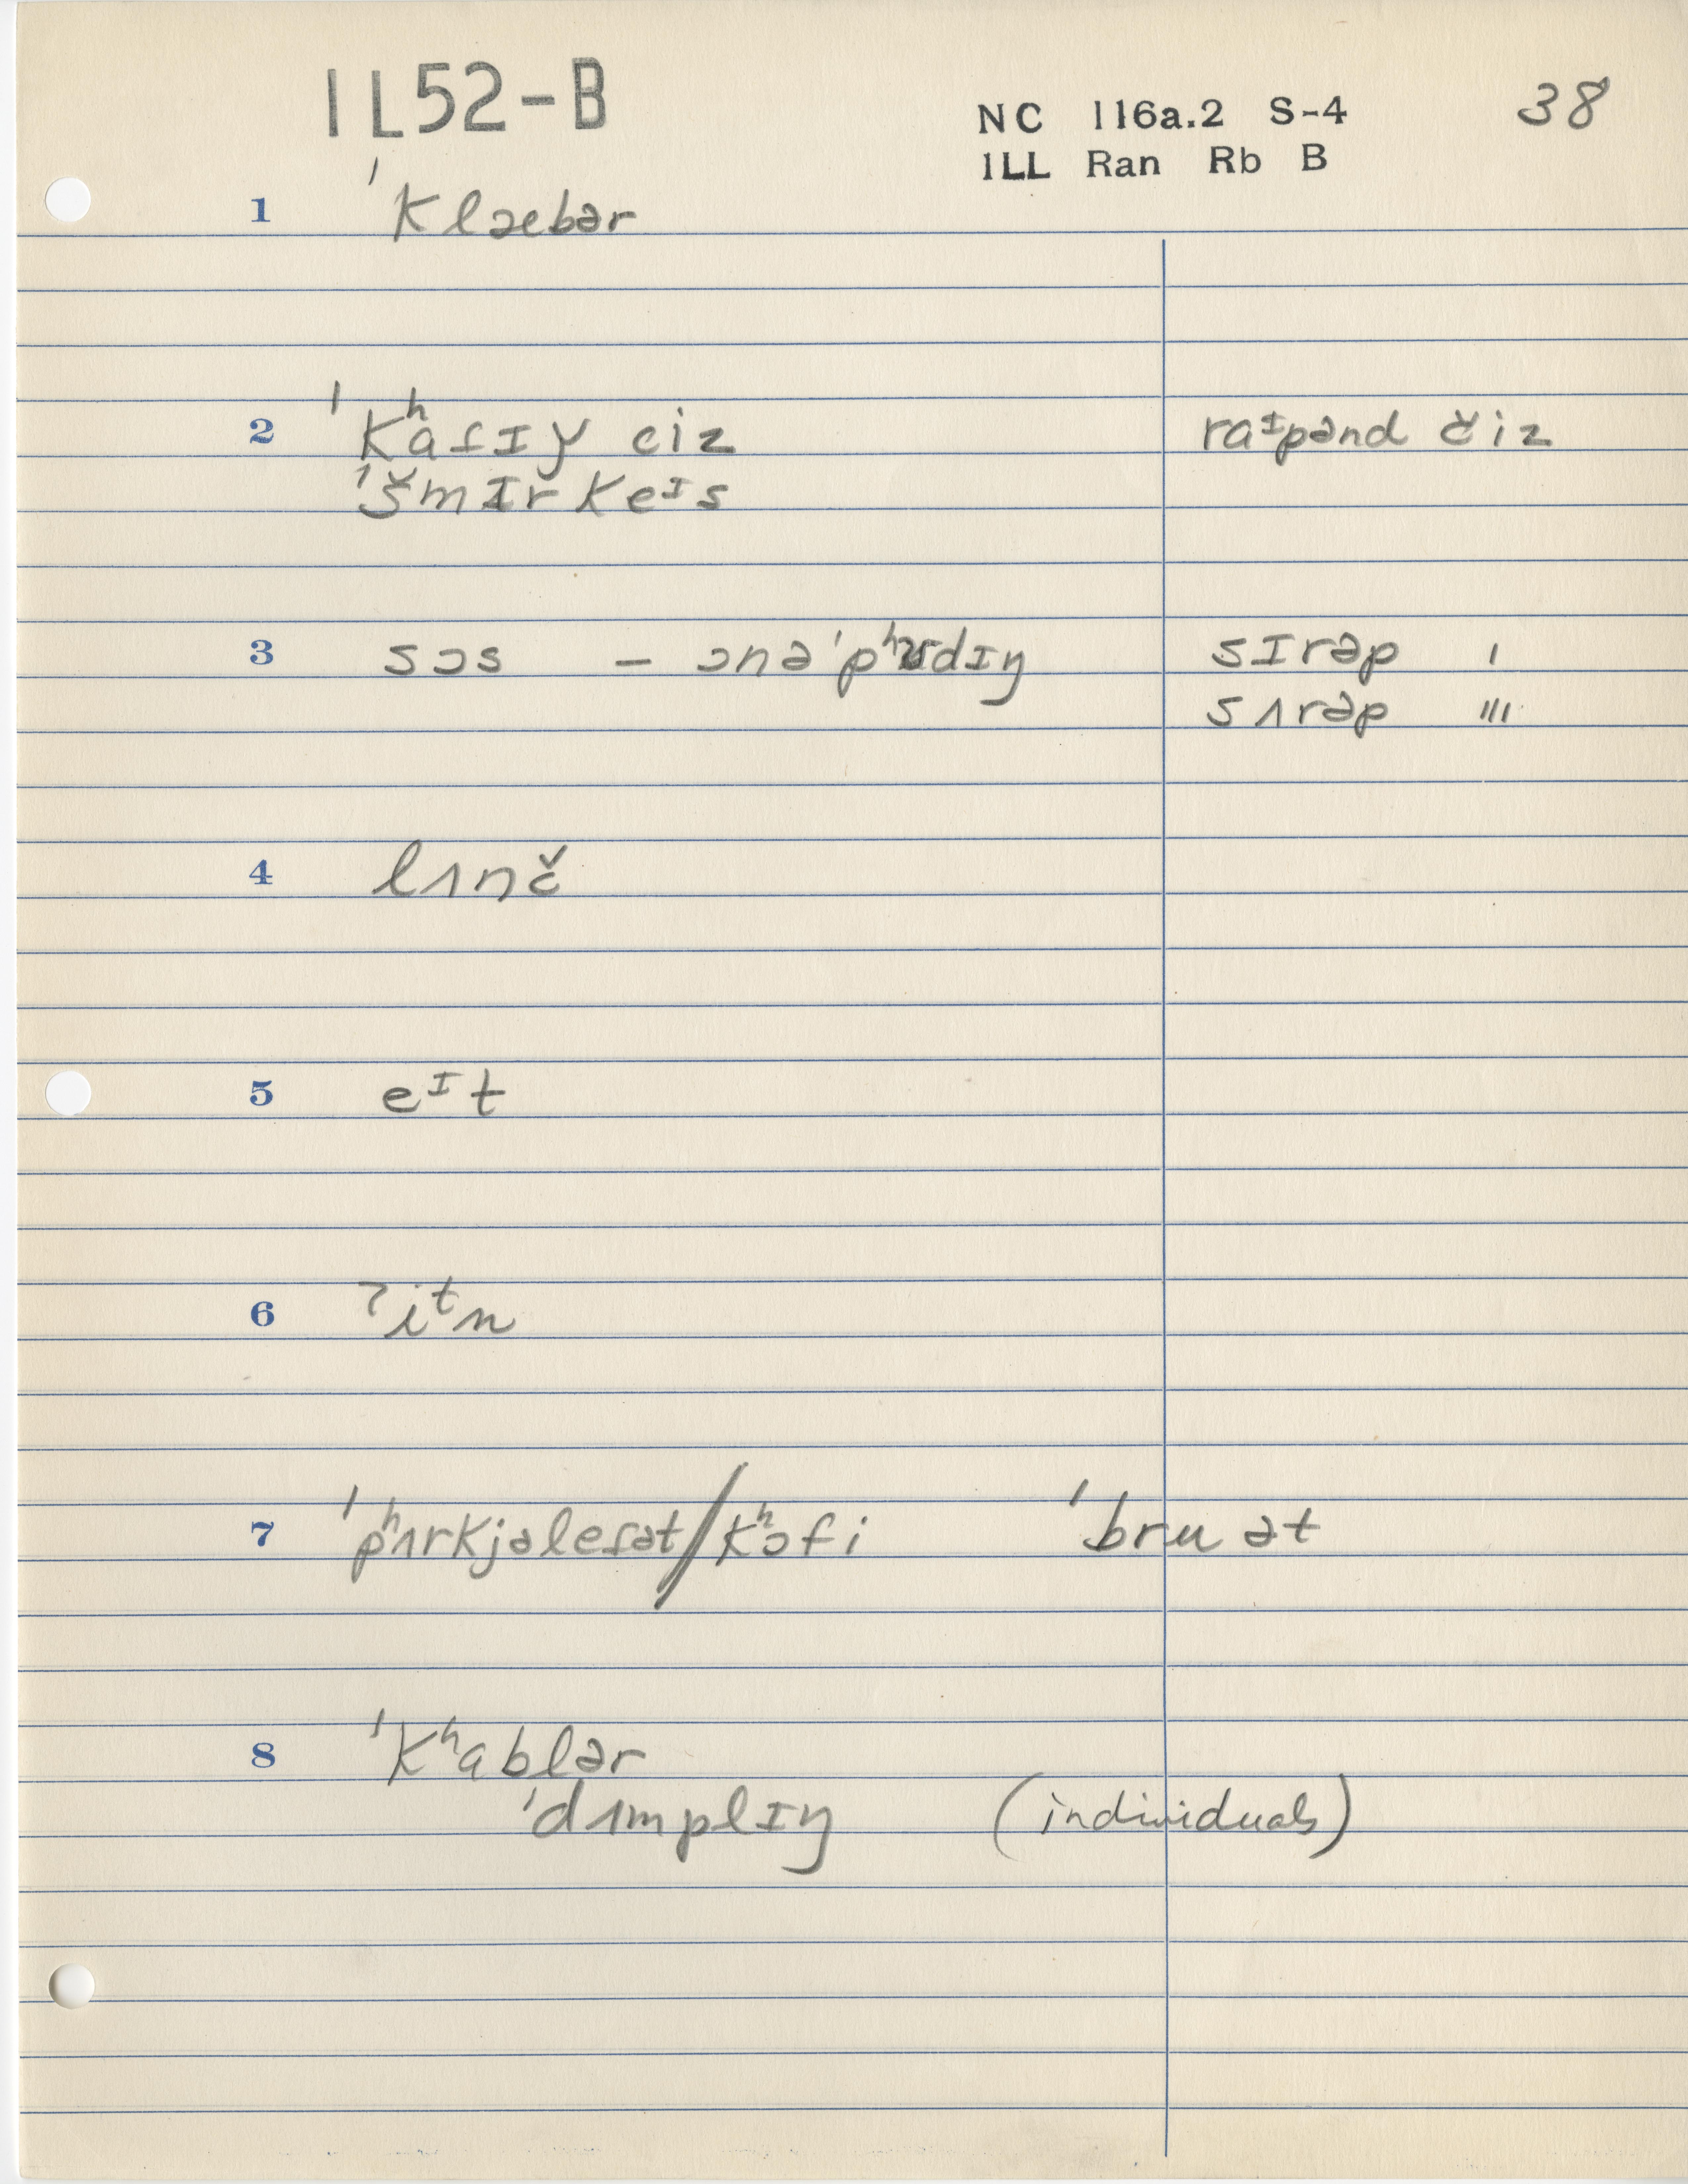 1L52-B
NC 116a.2 S-4 38
1LL Ran Rb B
1 ˈklæbər
2 ˈkʰatɪɟ ciz raᶦpənd čiz
ˈšmɪrkeᶦs
3 sɔs – ɔnəˈpʰʊdɪŋ sɪrəp ı
sʌrəp ııı
4 lʌnč
5 eᶦt
6 ˀiᵗn
7 ˈpʰʌrkjəletət/kʰɔfi ˈbru ət
8 ˈkʰablər
ˈdʌmplɪŋ (individuals)